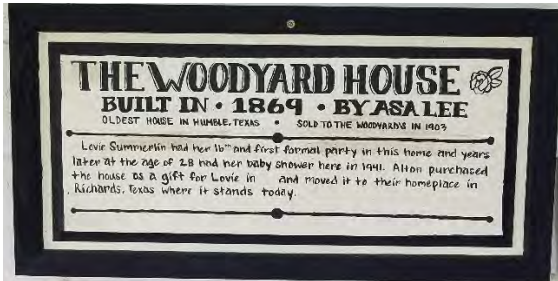 THE WOODYARD HOUSE
BUILT IN • 1869 • BY ASA LEE
OLDEST HOUSE IN HUMBLE, TEXAS • SOLD TO THE WOODYARD'S IN 1903
Lovie Summerlin had her 16th and first formal party in this home and years
later at the age of 28 had her baby shower here in 1941. Alton purchased
the house as a gift for Lovie in and moved it to their homeplace in
Richards, Texas where it stands today.